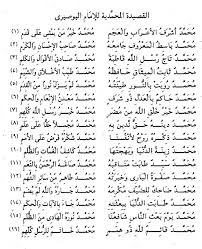 القصيدة المحمدية للإمام البوصيري
مُحَمَّدٌ أَشْرَفُ الأَعْرَابِ وَالعَجَمِ مُحَمَّدٌ خَيْرُ مَنْ يَمْشِي عَلَى قَدَمِ (١)
مُحَمَّدٌ بَاسِطُ المَعْرُوفِ جَامِعُهُ مُحَمَّدٌ صَاحِبُ الإِحْسَانِ وَالكَرَمِ (٢)
مُحَمَّدٌ تَاجُ رُسْلِ اللهِ قَاطِبَةً مُحَمَّدٌ صَادِقُ الأَقْوَالِ وَالكَلِمِ (٣)
مُحَمَّدٌ ثَابِتُ المِيثَاقِ حَافِظُهُ مُحَمَّدٌ طَيِّبُ الأَخْلَاقِ وَالشِّيَمِ (٤)
مُحَمَّدٌ رُوِيَتْ بِالنُّورِ طِينَتُهُ مُحَمَّدٌ لَمْ يَزَلْ نُورًا مِنَ القِدَمِ (٥)
مُحَمَّدٌ حَاكِمٌ بِالعَدْلِ ذُو شَرَفٍ مُحَمَّدٌ مَعْدِنُ الإِنْعَامِ وَالحِكَمِ (٦)
مُحَمَّدٌ خَيْرُ خَلْقِ اللهِ مِنْ مُضَرٍ مُحَمَّدٌ خَيْرُ رُسْلِ اللهِ كُلِّهِمِ (٧)
مُحَمَّدٌ دِينُهُ حَقٌّ نَدِينُ بِهِ مُحَمَّدٌ حَقًّا عَلَى عَلَمِ (٨)
مُحَمَّدٌ ذِكْرُهُ رُوحٌ لِأَنْفُسِنَا مُحَمَّدٌ شُكْرُهُ فَرْضٌ عَلَى الأُمَمِ (٩)
مُحَمَّدٌ زِينَةُ الدُّنْيَا وَبَهْجَتُهَا مُحَمَّدٌ كَاشِفُ الغُمَّاتِ وَالظُّلَمِ (١٠)
مُحَمَّدٌ سَيِّدٌ طَابَتْ مَنَاقِبُهُ مُحَمَّدٌ صَاغَهُ الرَّحْمَنُ بِالنِّعَمِ (١١)
مُحَمَّدٌ صَفْوَةُ البَارِي وَخِيرَتُهُ مُحَمَّدٌ طَاهِرٌ مِنْ سَائِرِ التُّهَمِ (١٢)
مُحَمَّدٌ ضَاحِكٌ لِلضَّيْفِ مُكْرِمُهُ مُحَمَّدٌ جَارُهُ وَاللهِ لَمْ يُضَمِ (١٣)
مُحَمَّدٌ طَابَتِ الدُّنْيَا بِبِعْثَتِهِ مُحَمَّدٌ جَاءَ بِالآيَاتِ وَالحِكَمِ (١٤)
مُحَمَّدٌ يَوْمَ بَعْثِ النَّاسِ شَافِعُنَا مُحَمَّدٌ نُورُهُ الهَادِي مِنَ الظُّلَمِ (١٥)
مُحَمَّدٌ قَائِمٌ لِلهِ ذُو هِمَمٍ مُحَمَّدٌ خَاتَمٌ لِلرُّسْلِ كُلِّهِمِ (١٦)